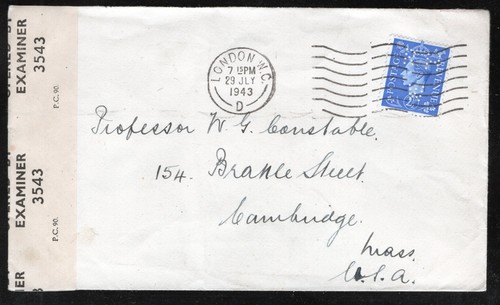 OPENED BY
EXAMINER
3543
P.C. 90.
OPENED BY
EXAMINER
3543
P.C. 90.
LONDON. W.C.
7 15 PM
29 JLY
1943
D
POSTAGE
REVENUE
Professor W. G. Constable.
154. Brattle Street.
Cambridge.
Mass.
U.S.A.